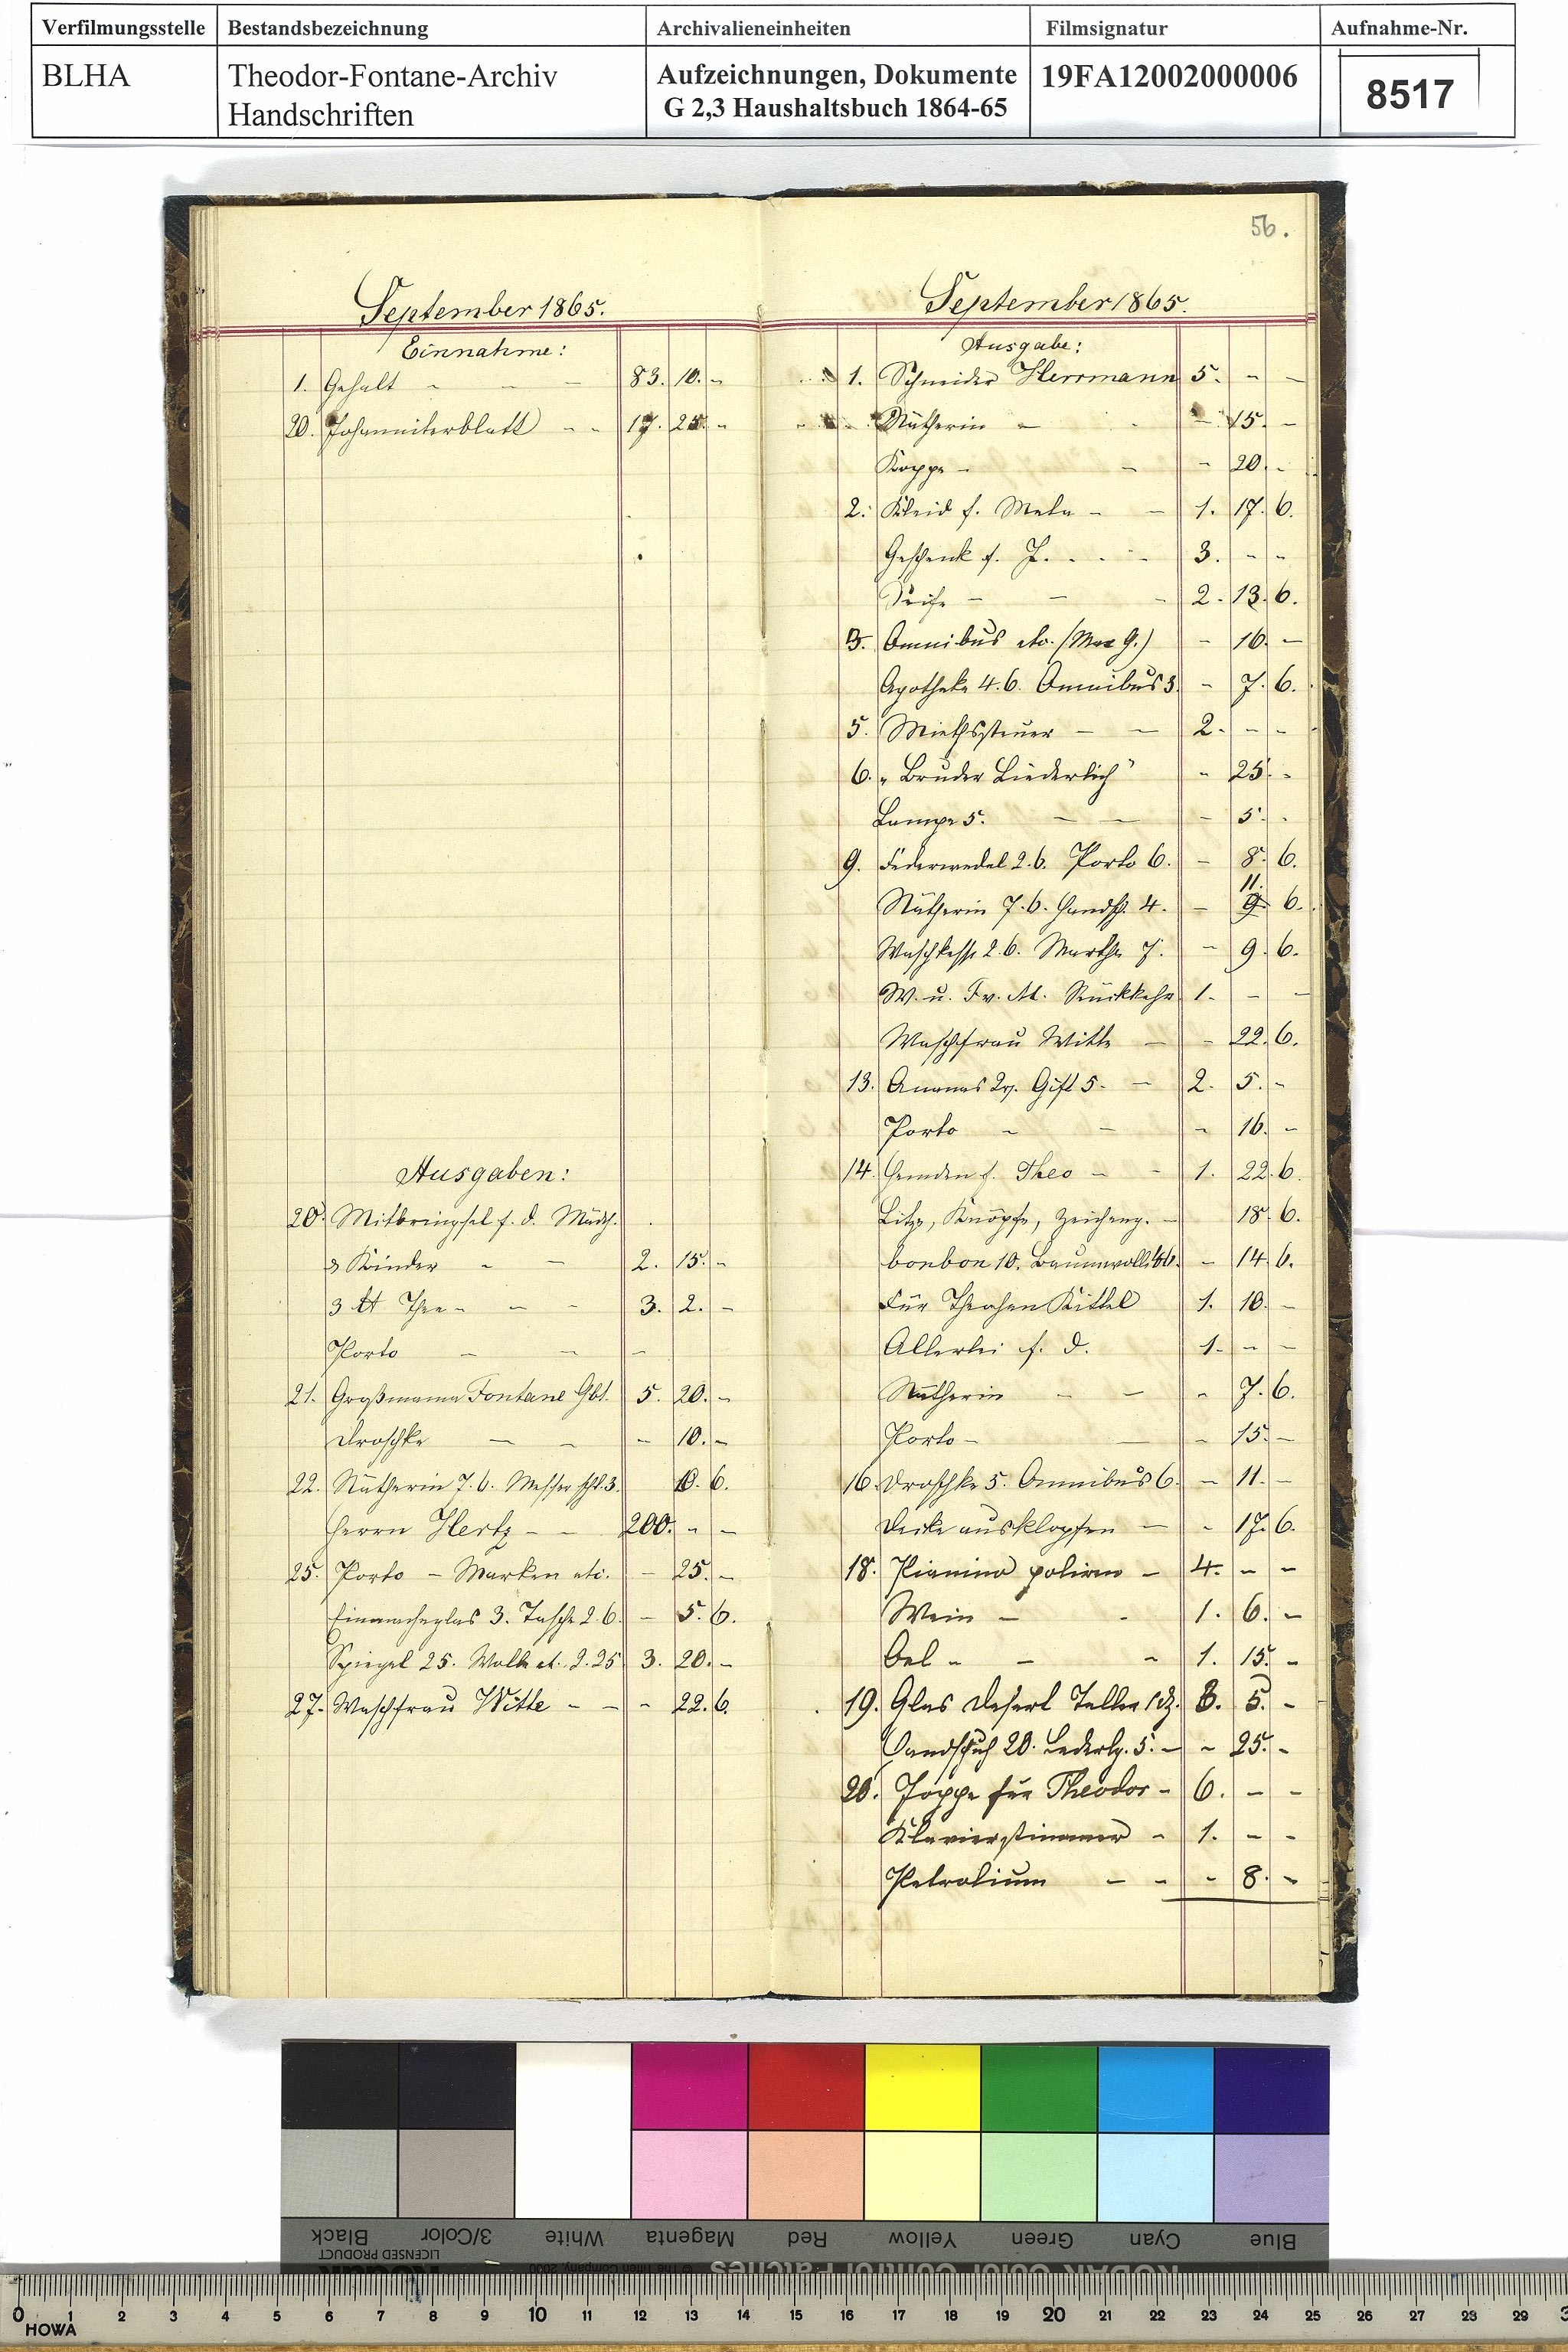 Verfilmungsstelle Bestandsbezeichnung Archivalieneinheiten Filmsignatur Aufnahme-Nr.
BLHA Theodor-Fontane-Archiv Handschriften Aufzeichnungen, Dokumente G 2,3 Haushaltsbuch 1864-65 19FA12002000006 8517
September 1865.
Einnahme:
1. Gehalt - - - 83. 10. -
20. Johanniterblatt - - 17. 25. -
Ausgaben:
20. Mitbringsel f. d. Mädch.
3 Kinder - - 2. 15. -
3 ℔ Thee - - - 3. 2. -
Porto - - -
21. Großmama Fontane Gbt. 5. 20. -
Droschke - - - 10. -
22. Nätherin 7.6. Messer schl. 3. 10. 6.
Herrn Hertz - - 200. - -
25. Porto - Marken etc. - 25. -
Einmacheglas 3. Tasche 2.6. - 5. 6.
Spiegel 25. Wolle et. 2.25 3. 20. -
27. Waschfrau Witte - - - 22. 6.
56.
September 1865.
Ausgabe:
1. Schneider Herrmann 5. - -
Nätherin - - - 15. -
Koppe - - - 20. -
2. Kleid f. Mete - - 1. 17. 6.
Geschenk f. J. - - - 3. - -
Seife - - - 2. 13. 6.
3. Omnibus etc. (Max G.) - 16. -
Apotheke 4.6. Omnibus 3. - 7. 6.
5. Miethssteuer - - 2. - -
6. „Bruder Liederlich" - 25. -
Lampe 5. - - - 5. -
9. Federwedel 2.6. Porto 6. - 8. 6.
Nätherin 7.6. Handsch. 4. - 11. 6.
Waschkesse 2.6. Marthe 7. - 9. 6.
W. u. Fr. Rückkehr 1. - -
Waschfrau Witte - - 22. 6.
13. Ananas 2. Gift 5. - 2. 5. -
Porto - - - 16. -
14. Hemden f. Theo - - 1. 22. 6.
Litze, Knöpfe, Zeicheng. - 18. 6.
bonbon 10. Baumwolle 4.6. - 14. 6.
Für Theochen Kittel 1. 10. -
Allerlei f. d. 1. - -
Nätherin - - - 7. 6.
Porto - - - 15. -
16. Droschke 5. Omnibus 6. - 11. -
Decke ausklopfen - - 17. 6.
18. Pianino poliren - 4. - -
Wein - - 1. 6. -
Oel - - - 1. 15. -
19. Glas Desert Teller 1 dz. 3. 5. -
Handschuh 20. Lederlg. 5. - - 25. -
20. Joppe für Theodor - 6. - -
Klavierstimmer - 1. - -
Petroleum - - - 8. -
Black 3/Color White Magenta Red Yellow Green Cyan Blue
LICENSED PRODUCT
KODAK Color Control Patches
0 1 2 3 4 5 6 7 8 9 10 11 12 13 14 15 16 17 18 19 20 21 22 23 24 25 26 27 28 29
HOWA